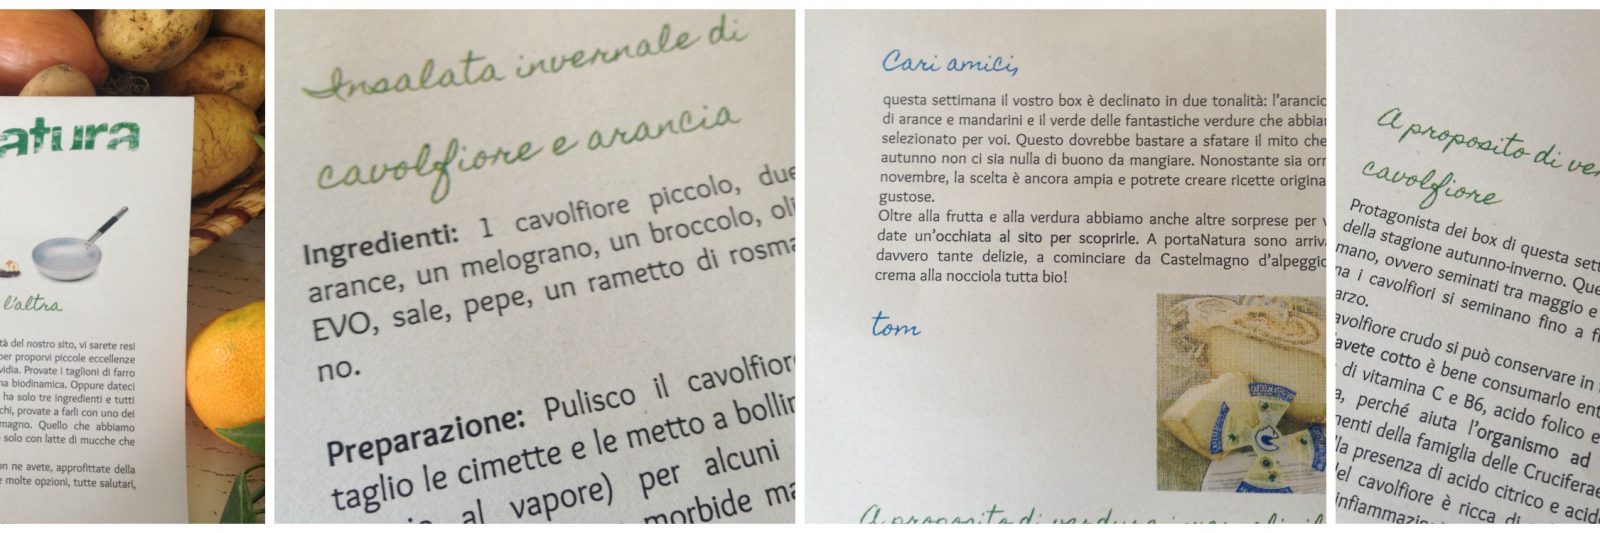 atura
l'altra
tà del nostro sito, vi sarete resi
per proporvi piccole eccellenze
vidia. Provate i taglioni di farro
na biodinamica. Oppure dateci
ha solo tre ingredienti e tutti
chi, provate a farli con uno del
magno. Quello che abbiamo
solo con latte di mucche che
on ne avete, approfittate della
e molte opzioni, tutte salutari,
Insalata invernale di
cavolfiore e arancia
Ingredienti: 1 cavolfiore piccolo, due
arance, un melograno, un broccolo, oli
EVO, sale, pepe, un rametto di rosma
no.
Preparazione: Pulisco il cavolfior
taglio le cimette e le metto a bollir
al vapore) per alcuni
morbide ma
Cari amici,
questa settimana il vostro box è declinato in due tonalità: l'arancio
di arance e mandarini e il verde delle fantastiche verdure che abbia
selezionato per voi. Questo dovrebbe bastare a sfatare il mito che
autunno non ci sia nulla di buono da mangiare. Nonostante sia orm
novembre, la scelta è ancora ampia e potrete creare ricette origina
gustose.
Oltre alla frutta e alla verdura abbiamo anche altre sorprese per v
date un'occhiata al sito per scoprirle. A portaNatura sono arriva
davvero tante delizie, a cominciare da Castelmagno d'alpeggio
crema alla nocciola tutta bio!
tom
A proposito di verdure invernali: il
A proposito di ver
cavolfiore
Protagonista dei box di questa sett
della stagione autunno-inverno. Que
mano, ovvero seminati tra maggio e
na i cavolfiori si seminano fino a f
arzo.
avolfiore crudo si può conservare in
avete cotto è bene consumarlo ent
di vitamina C e B6, acido folico e
a, perché aiuta l'organismo ad
menti della famiglia delle Cruciferae
lla presenza di acido citrico e acid
del cavolfiore è ricca di
infiammazio